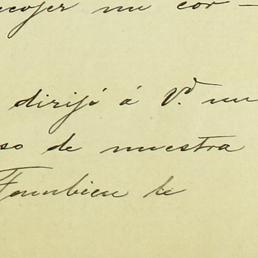 ecojer un cor-
dirijó á Vd. un
so de nuestra
Tambien le